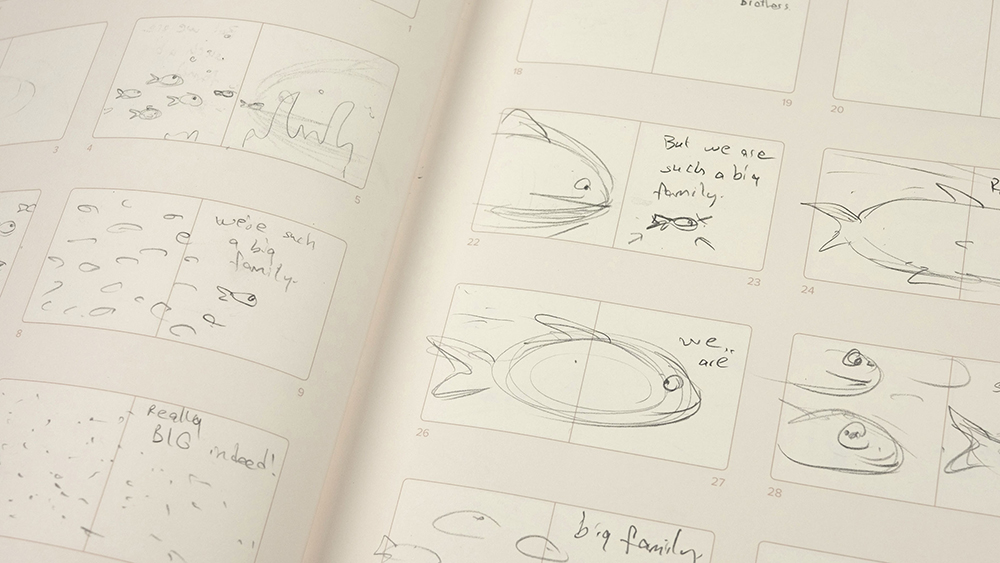 1
3
4
5
we're such
a big
family.
8
9
Really
BIG indeed!
Brothers
18
19
20
But we are
such a big
family.
22
23
24
we..
are
26
27
28
big family